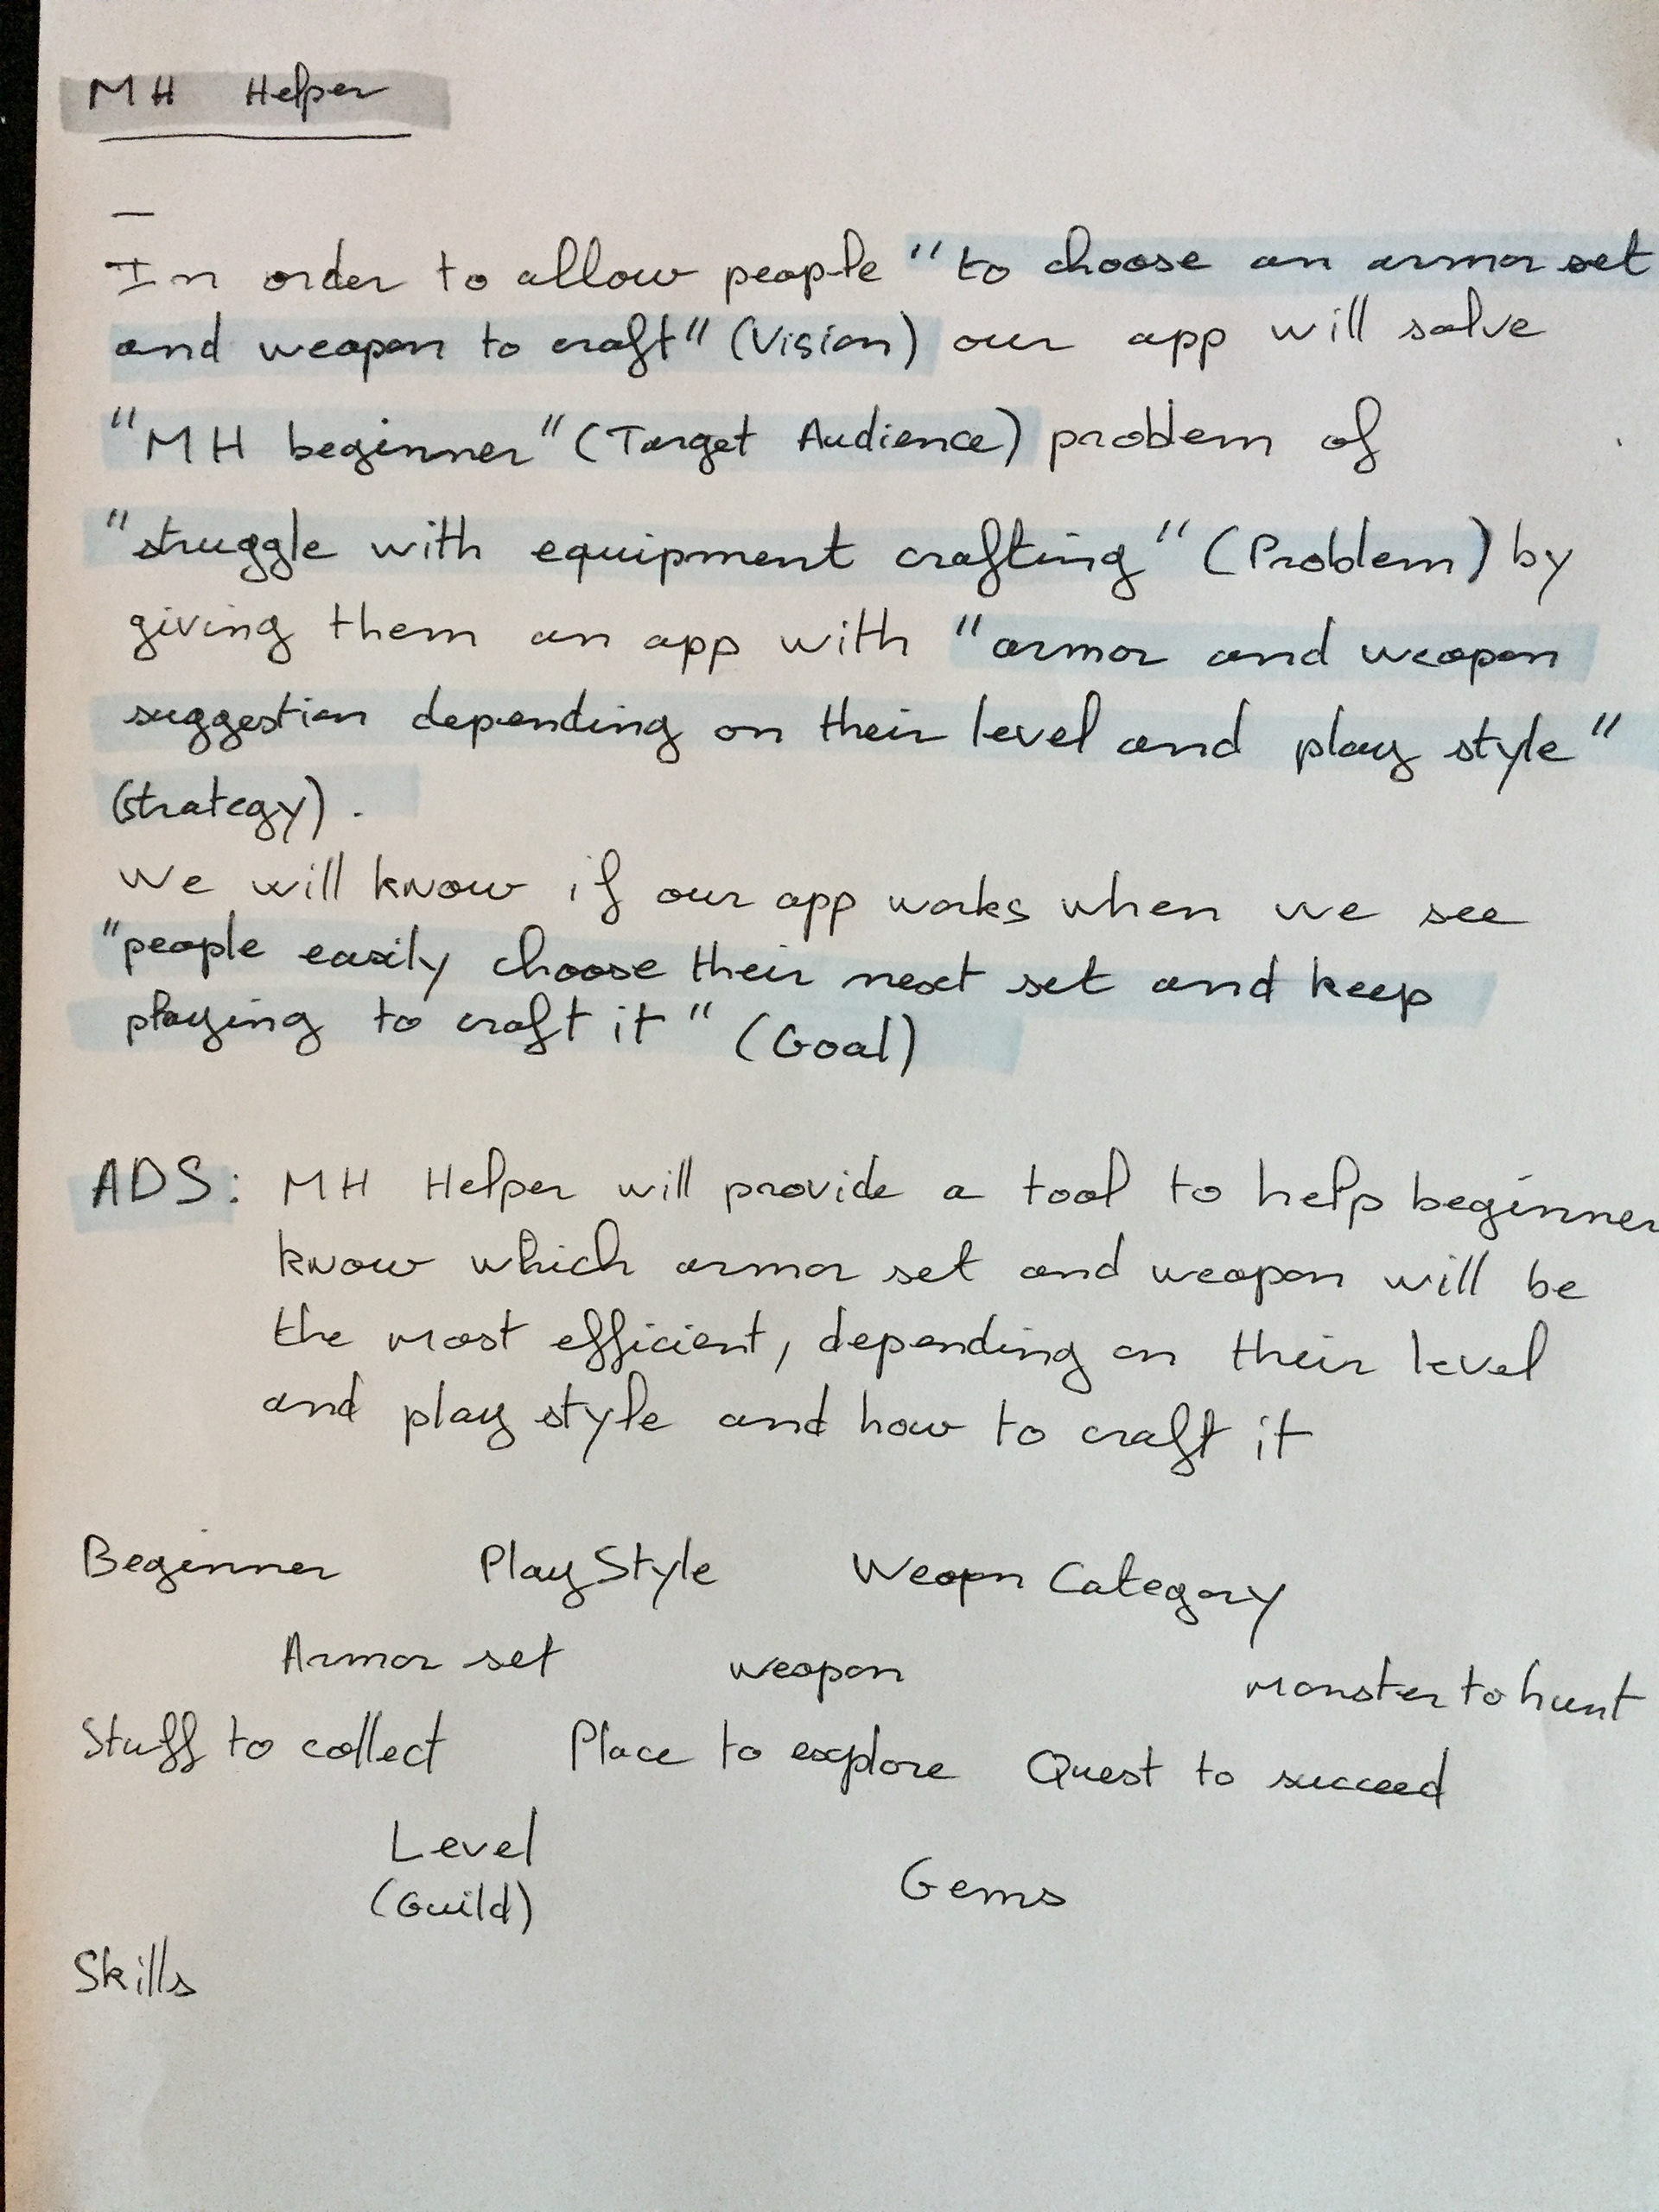 MH Helper
In order to allow people "to choose an armor set
and weapon to craft" (Vision) our app will solve
"MH beginner" (Target Audience) problem of
"struggle with equipment crafting" (Problem) by
giving them an app with "armor and weapon
suggestion depending on their level and play style"
(strategy).
We will know if our app works when we see
"people easily choose their next set and keep
playing to craft it" (Goal)
ADS: MH Helper will provide a tool to help beginner
know which armor set and weapon will be
the most efficient, depending on their level
and play style and how to craft it
Beginner Play Style Weopn Category
Armor set weapon monster to hunt
Stuff to collect Place to explore Quest to succeed
Level
(Guild) Gems
Skills